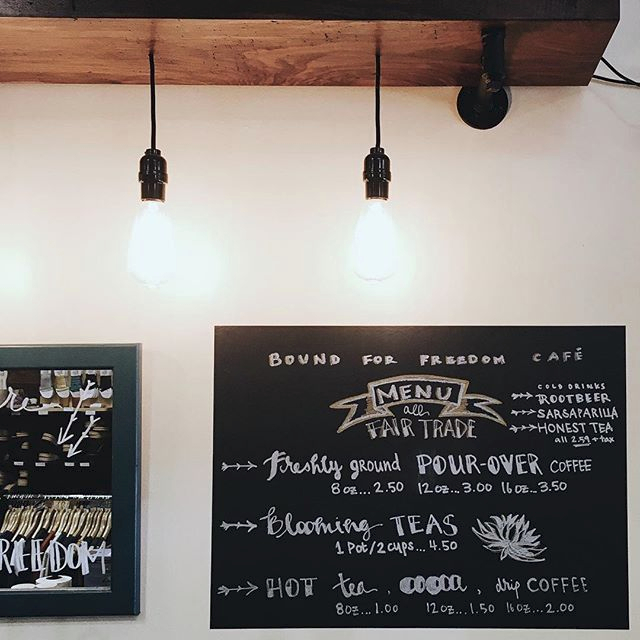 BOUND FOR FREEDOM CAFÉ
MENU
all
FAIR TRADE
COLD DRINKS
ROOTBEER
SARSAPARILLA
HONEST TEA
all 2.59 + tax
Freshly ground POUR-OVER COFFEE
8 oz... 2.50 12 oz... 3.00 16 oz... 3.50
Blooming TEAS
1 Pot/2 cups... 4.50
HOT tea, cocoa, drip COFFEE
8 oz... 1.00 12 oz... 1.50 16 oz... 2.00
re
REEDOM